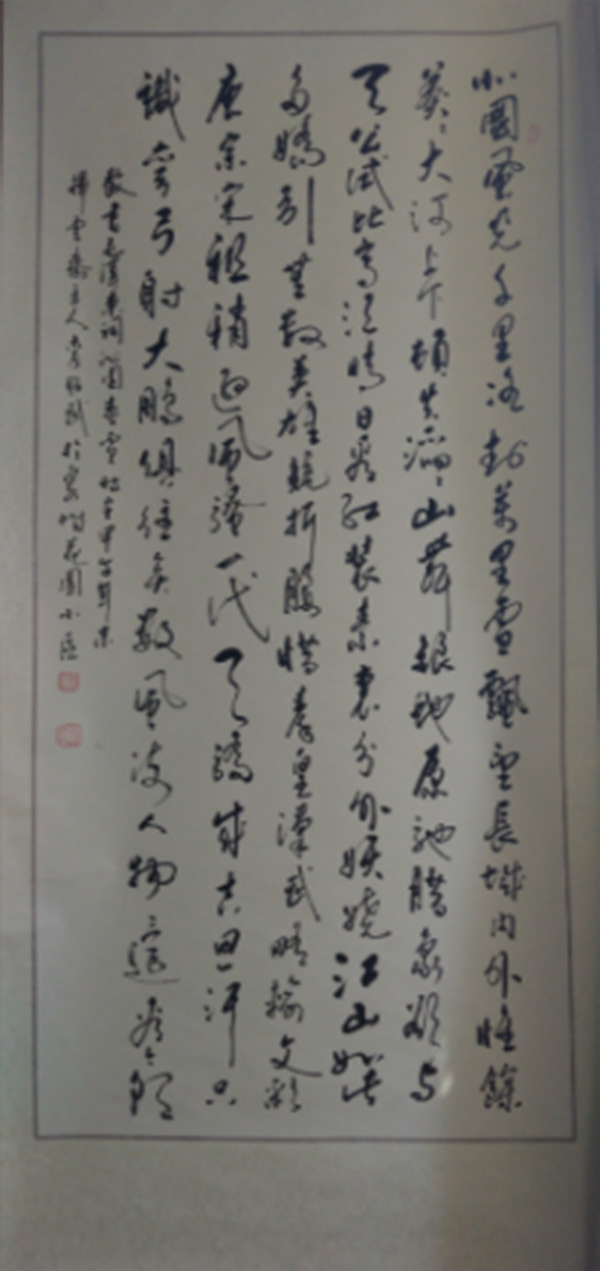 北國風光千里冰封萬里雪飄望長城內外惟餘
莽々大河上下頓失滔々山舞銀蛇原馳蠟象欲與
天公試比高須晴日看紅裝素裹分外妖嬈江山如此
多嬌引無數英雄競折腰惜秦皇漢武略輸文彩
唐宗宋祖稍遜風騷一代天驕成吉思汗只
識彎弓射大鵰俱往矣數風流人物還看今朝
敬書毛澤東詞沁園春雪時在甲午年
主人 武於 花園小區